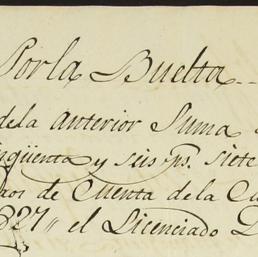 Por la Buelta
de la anterior Suma
inqüenta y seis ps. siete
de Cuenta de la Ca
827, el Licenciado D